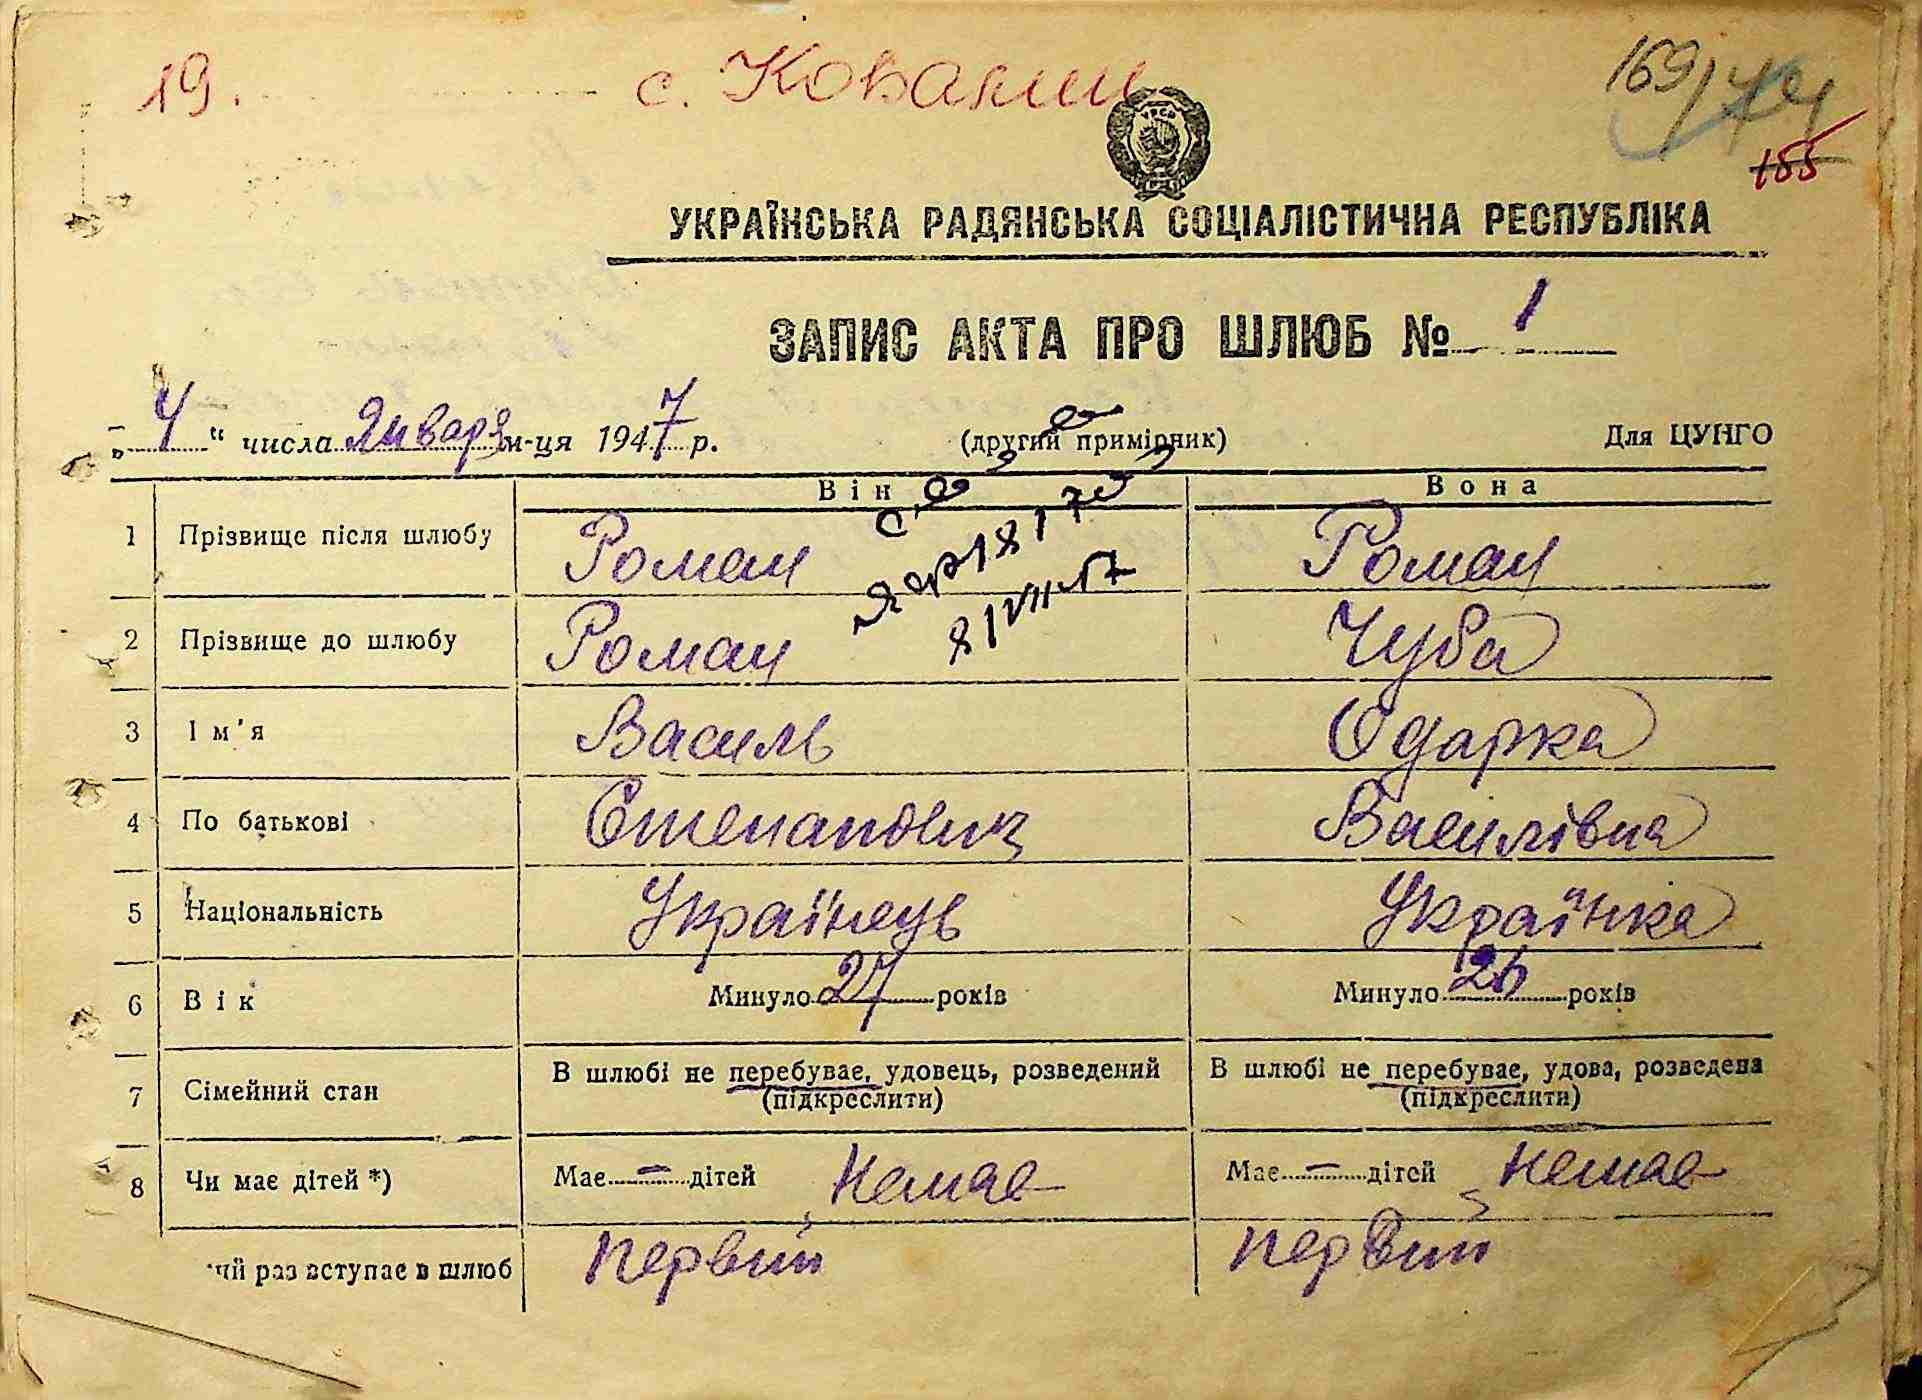 19.
с.
169/74
155
УРСР
УКРАЇНСЬКА РАДЯНСЬКА СОЦІАЛІСТИЧНА РЕСПУБЛІКА
ЗАПИС АКТА ПРО ШЛЮБ № 1
„4“ числа Января м-ця 1947 р. (другий примірник) Для ЦУНГО
Він Вона
1 Прізвище після шлюбу Роман Роман
2 Прізвище до шлюбу Роман Чуба
3 Ім'я Василь Одарка
4 По батькові Степанович Василівна
5 Національність Українець Українка
6 Вік Минуло 27 років Минуло 26 років
7 Сімейний стан В шлюбі не перебуває, удовець, розведений В шлюбі не перебуває, удова, розведена
(підкреслити) (підкреслити)
8 Чи має дітей *) Має — дітей Немає Має — дітей Немає
ий раз вступає в шлюб первий первий